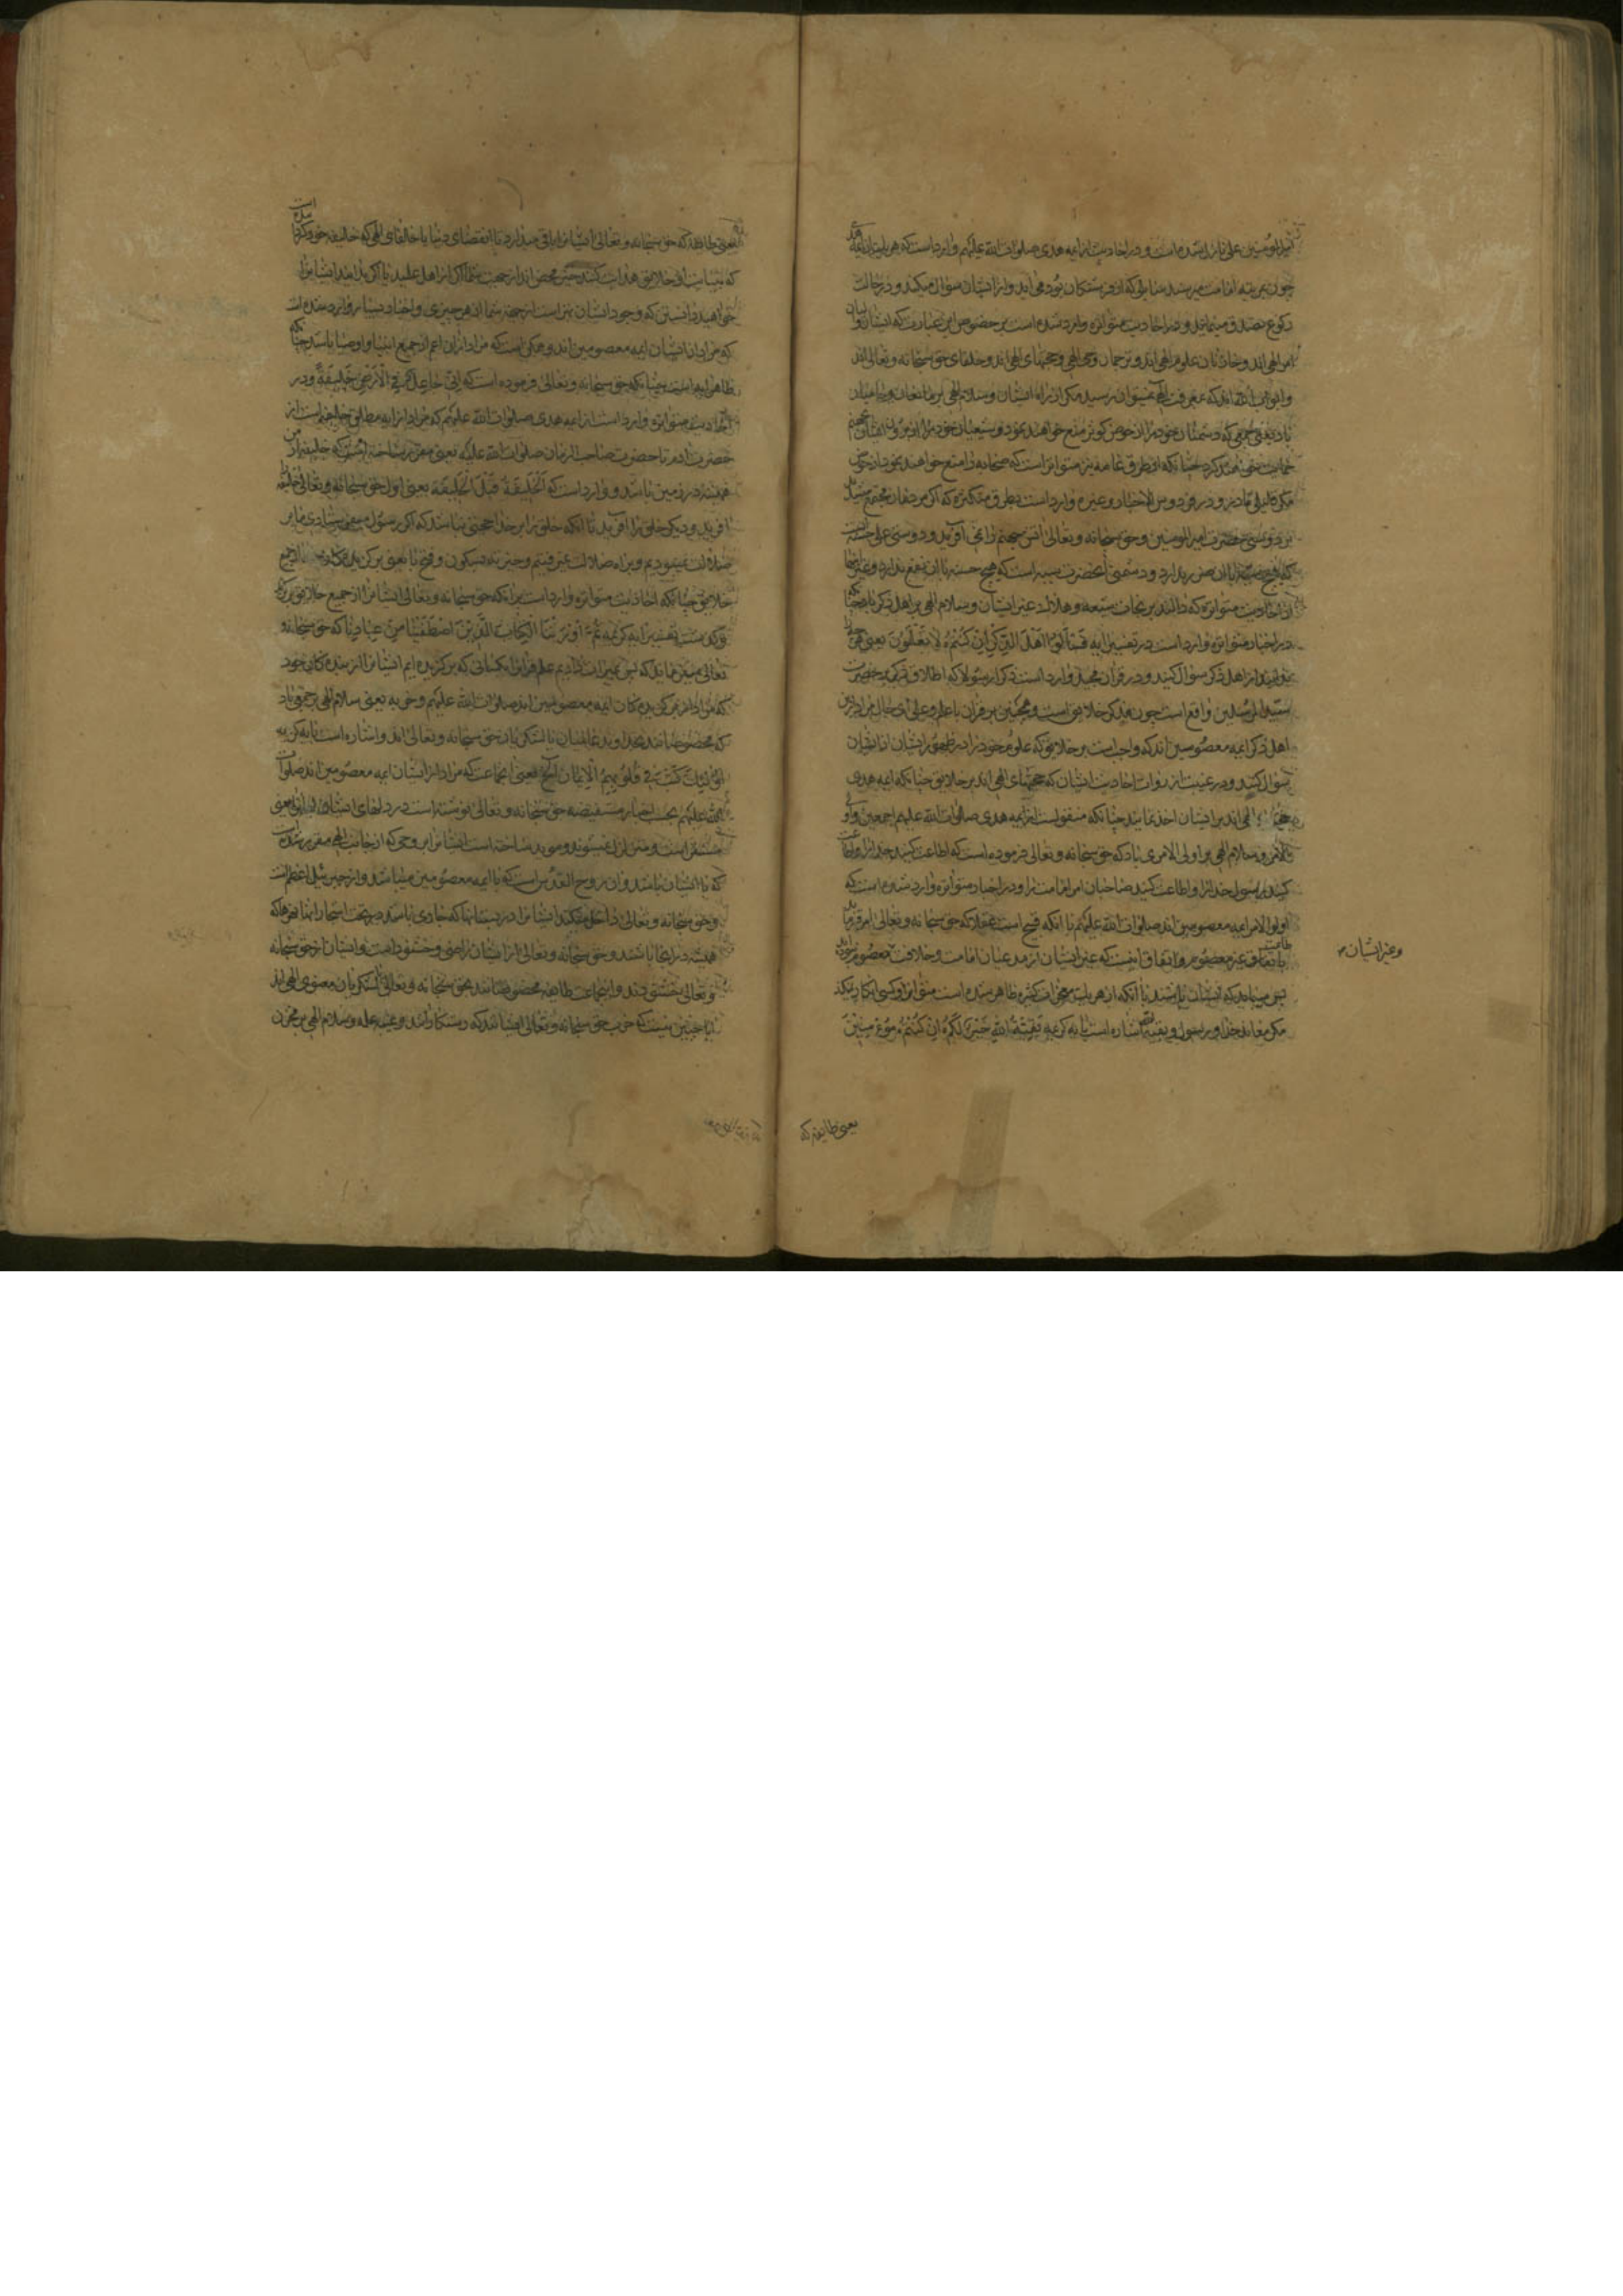 امیرالمؤمنین علی نازل شده است و در احادیث از ایمه هدی صلوات الله علیهم وارد است که هر یک از ائمه
چون بمرتبه امامت میرسند سایلی که از فرشتگان بوده می‌آید و از ایشان سؤال میکند و در حالت
رکوع تصدق مینمایند و در احادیث متواتره وارد شده است بر خصوص این عبارت که ایشان والیان
امر الهی‌اند و خازنان علوم الهی‌اند و ترجمان وحی الهی و حجتهای الهی‌اند و خلفای حق سبحانه و تعالی‌اند
و ابواب الله‌اند که بمعرفت الهی نمیتوان رسید مگر از راه ایشان و سلام الهی بر مانعان و حامیان
باد یعنی جمعی که دشمنان خود را از حوض کوثر منع خواهند نمود و شیعیان خود را
حمایت خواهند کرد چنانکه از طرق عامه نیز متواتر است که صحابه را منع خواهند نمود از حوض
مگر قلیلی مادر و در فردوس الاخبار و غیره وارد است بطرق متکثره که اگر مردمان مجتمع میشدند
بر دوستی حضرت امیرالمومنین حق سبحانه و تعالی آتش جهنم را نمی‌آفرید و دوستی علی حسنه‌ایست
که هیچ سیئه با آن ضرر ندارد و دشمنی آنحضرت سیئه است که هیچ حسنه با آن نفع ندارد و غیر اینها
از احادیث متواتره که دالند بر نجات شیعه و هلاک غیر ایشان و سلام الهی بر اهل ذکر باد چنانکه
در اخبار متواتره وارد است در تفسیر ایه فَسْأَلُوا أَهْلَ الذِّكْرِ إِنْ كُنْتُمْ لَا تَعْلَمُونَ یعنی هر چه را
نمیدانید از اهل ذکر سؤال کنید و در قرآن مجید وارد است ذکرا رسولا که اطلاق ذکر بر حضرت
سید المرسلین واقع است چون مذکر خلایق است و همچنین بر قرآن یا علم و علی ای حال مراد از این
اهل ذکر ایمه معصومین‌اند که واجب است بر خلایق که علوم خود را در ظهور ایشان از ایشان
سؤال کنند و در غیبت از روات احادیث ایشان که حجتهای الهی‌اند بر خلایق چنانکه ایمه هدی
حجتهای الهی‌اند بر ایشان اخذ نمایند چنانکه منقولست از ایمه هدی صلوات الله علیهم اجمعین
و سلام الهی بر اولی الامری باد که حق سبحانه و تعالی فرموده است که اطاعت کنید خدا را و اطاعت
کنید رسول خدا را و اطاعت کنید صاحبان امر امامت را و در اخبار متواتره وارد شده است که
اولوا الامر ایمه معصومین‌اند صلوات الله علیهم با آنکه قبیح است عقلا که حق سبحانه و تعالی امر فرماید
باطاعت غیر معصوم و اتفاق نیست که غیر ایشان از مدعیان امامت و خلافت معصوم نبودند
پس میباید که ایشان باشند با آنکه از هر یک معجزات کثیره ظاهر شده است متواترا و کسی انکار نکند
مگر معاند خدا و رسول و بقیة الله اشاره است بآیه کریمه بَقِيَّةُ اللَّهِ خَيْرٌ لَكُمْ إِنْ كُنْتُمْ مُؤْمِنِينَ
و غیر ایشان
یعنی طایفه که
یعنی طایفه که حق سبحانه و تعالی ایشانرا باقی میدارد تا انقضای دنیا یا خلفای الهی که خلیفه خود کرده است
که بنیابت او خلایق را هدایت کنند خیر محض‌اند از جهت شما اگر از اهل علمید یا اگر بدانید ایشانرا
خواهید دانستن که وجود ایشان بهتر است از جهة شما از هر چیزی و اخبار بسیار وارد شده است
که مراد از ایشان ایمه معصومین‌اند و ممکن است که مراد ازان اعم از جمیع انبیا و اوصیا باشد چنانکه
ظاهر ایه است چنانکه حق سبحانه و تعالی فرموده است که إِنِّي جَاعِلٌ فِي الْأَرْضِ خَلِيفَةً و در
احادیث متواتره وارد است از ایمه هدی صلوات الله علیهم که مراد از ایه مطلق خلیفه است از
حضرت آدم تا حضرت صاحب الزمان صلوات الله علیه یعنی مقرر ساخته‌ام که خلیفه از من
همیشه در زمین باشد و وارد است که الْخَلِيفَةُ قَبْلَ الْخَلِيقَةِ یعنی اول حق سبحانه و تعالی خلیفه
آفرید و دیگر خلق را آفرید تا آنکه خلق را بر خدا حجتی نباشد که اگر رسول میفرستادی ما بر
ضلالت نمیبودیم و براه ضلالت نمیرفتیم و خیرته بسکون و فتح یا یعنی برگزیدگان از جمیع
خلایق چنانکه احادیث متواتره وارد است بر آنکه حق سبحانه و تعالی ایشانرا از جمیع خلایق برگزیده
تفسیر ایه کریمه ثُمَّ أَوْرَثْنَا الْكِتَابَ الَّذِينَ اصْطَفَيْنَا مِنْ عِبَادِنَا که حق سبحانه و
تعالی میفرماید که پس میراث دادیم علم قرآن را بکسانی که برگزیده‌ایم ایشانرا از بندگان خود
که مراد از برگزیدگان ایمه معصومین‌اند صلوات الله علیهم وحزبه یعنی سلام الهی بر حزبی باد
که مخصوصانند بخداوند عالمیان یا لشکریان حق سبحانه و تعالی‌اند و اشاره است بآیه کریمه
أُولَئِكَ كَتَبَ فِي قُلُوبِهِمُ الْإِيمَانَ الخ یعنی آنجماعت که مراد از ایشان ایمه معصومین‌اند صلوات
الله علیهم بحسب اخبار مستفیضه حق سبحانه و تعالی نوشته است در دلهای ایشان ایمانرا یعنی
مستقر است و متزلزل نمیشوند و موید ساخته است ایشانرا بروحی که از جانب الهی مقرر شده است
که با ایشان باشد و آن روح القدس است که با ایمه معصومین میباشد و از جبرئیل اعظم است
و حق سبحانه و تعالی داخل میکند ایشانرا در بستانها که جاری باشد در تحت اشجار آنها نهرها که
همیشه در آنجا باشند و حق سبحانه و تعالی از ایشان راضی و خشنود است و ایشان از حق سبحانه
و تعالی خشنودند و اینجماعت طایفه مخصوصانند بحق سبحانه و تعالی و لشکریان معنوی الهی‌اند
آیا چنین نیست که حزب حق سبحانه و تعالی ایشانند که رستگارانند وعیبة علمه و سلام الهی بر مخزن